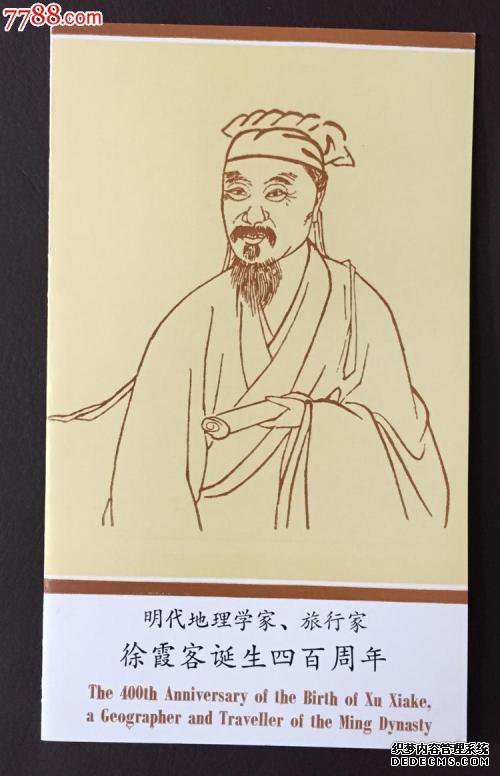 7788.com
明代地理学家、旅行家
徐霞客诞生四百周年
The 400th Anniversary of the Birth of Xu Xiake,
a Geographer and Traveller of the Ming Dynasty
织梦内容管理系统
DEDECMS.COM